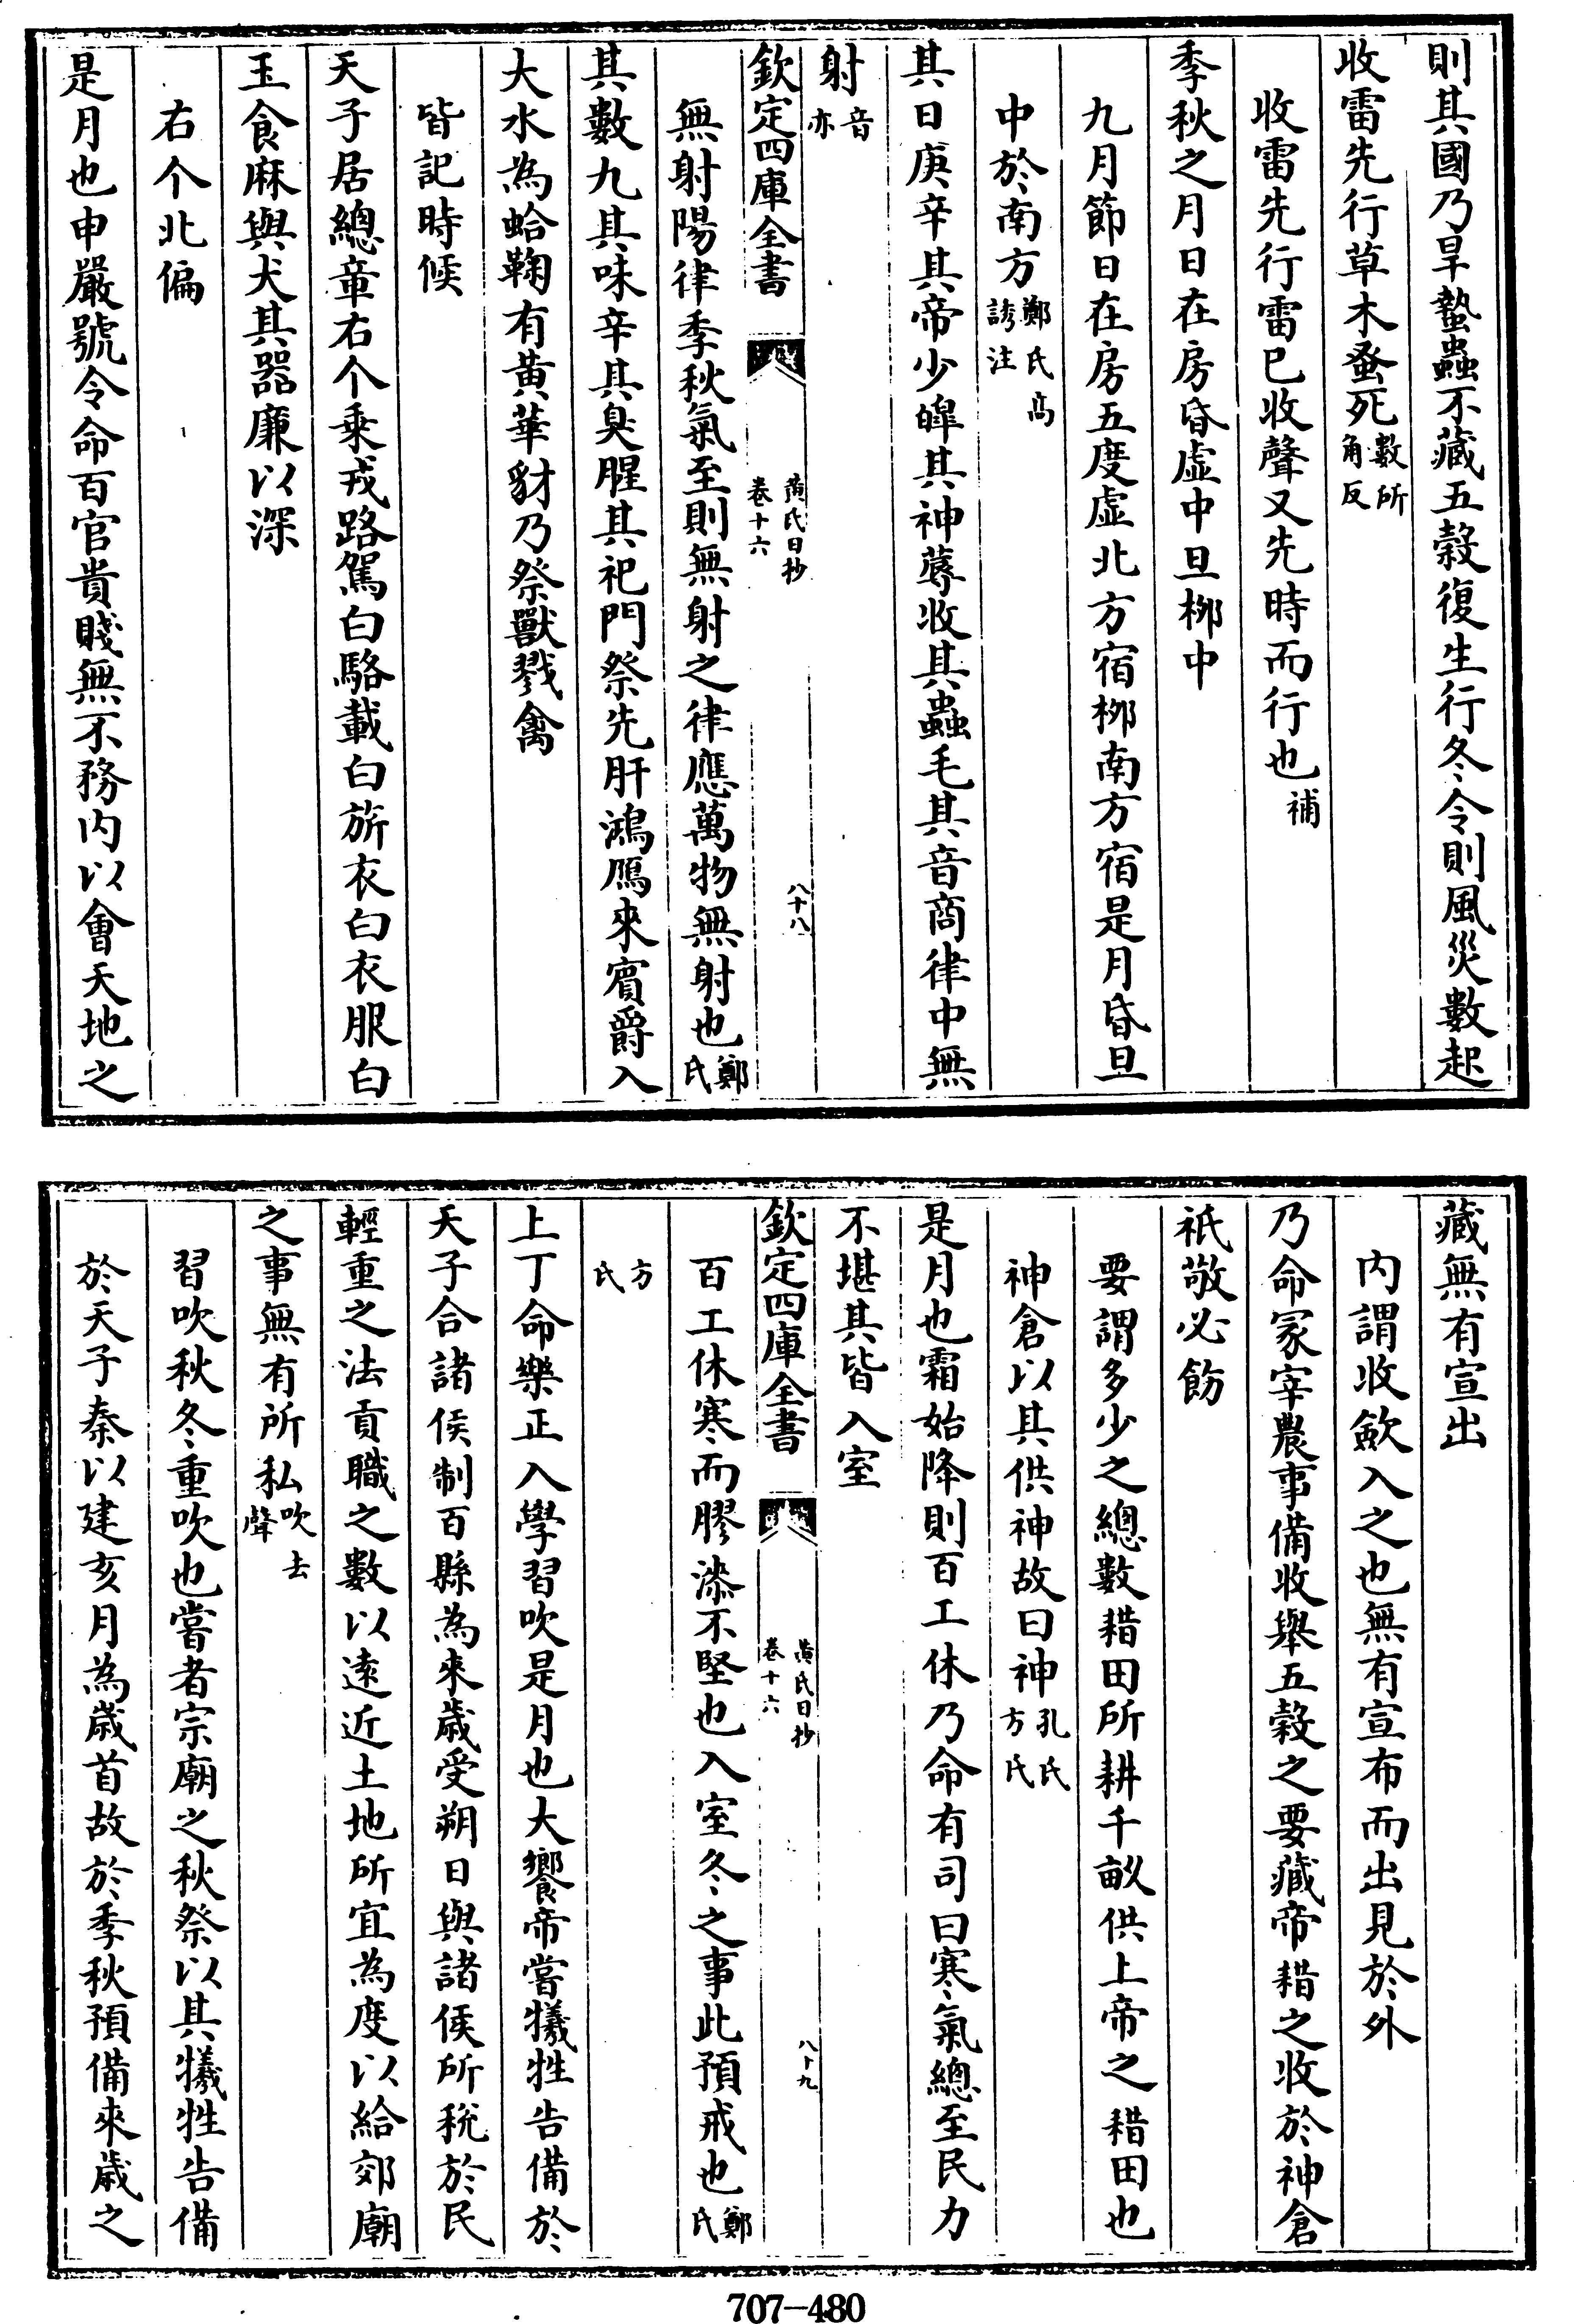 則其國乃旱蟄蟲不藏五穀復生行冬令則風災數起
收雷先行草木蚤死數所角反
收雷先行雷已收聲又先時而行也補
季秋之月日在房昏虛中旦栁中
九月節日在房五度虛北方宿栁南方宿是月昏旦
中於南方鄭氏高誘注
其日庚辛其帝少皥其神蓐收其蟲毛其音商律中無
射音亦
欽定四庫全書
黃氏日抄
卷十六
八十八
無射陽律季秋氣至則無射之律應萬物無射也鄭氏
其數九其味辛其臭腥其祀門祭先肝鴻鴈來賓爵入
大水為蛤鞠有黃華豺乃祭獸戮禽
皆記時候
天子居總章右个乘戎路駕白駱載白旂衣白衣服白
玉食麻與犬其器廉以深
右个北偏
是月也申嚴號令命百官貴賤無不務內以會天地之
藏無有宣出
內謂收歛入之也無有宣布而出見於外
乃命冢宰農事備收舉五穀之要藏帝耤之收於神倉
祇敬必飭
要謂多少之總數耤田所耕千畝供上帝之耤田也
神倉以其供神故曰神孔氏方氏
是月也霜始降則百工休乃命有司曰寒氣總至民力
不堪其皆入室
欽定四庫全書
黃氏日抄
卷十六
八十九
百工休寒而膠漆不堅也入室冬之事此預戒也鄭氏
方氏
上丁命樂正入學習吹是月也大饗帝嘗犧牲告備於
天子合諸侯制百縣為來歲受朔日與諸侯所稅於民
輕重之法貢職之數以遠近土地所宜為度以給郊廟
之事無有所私吹去聲
習吹秋冬重吹也嘗者宗廟之秋祭以其犧牲告備
於天子秦以建亥月為歲首故於季秋預備來歲之
707-480